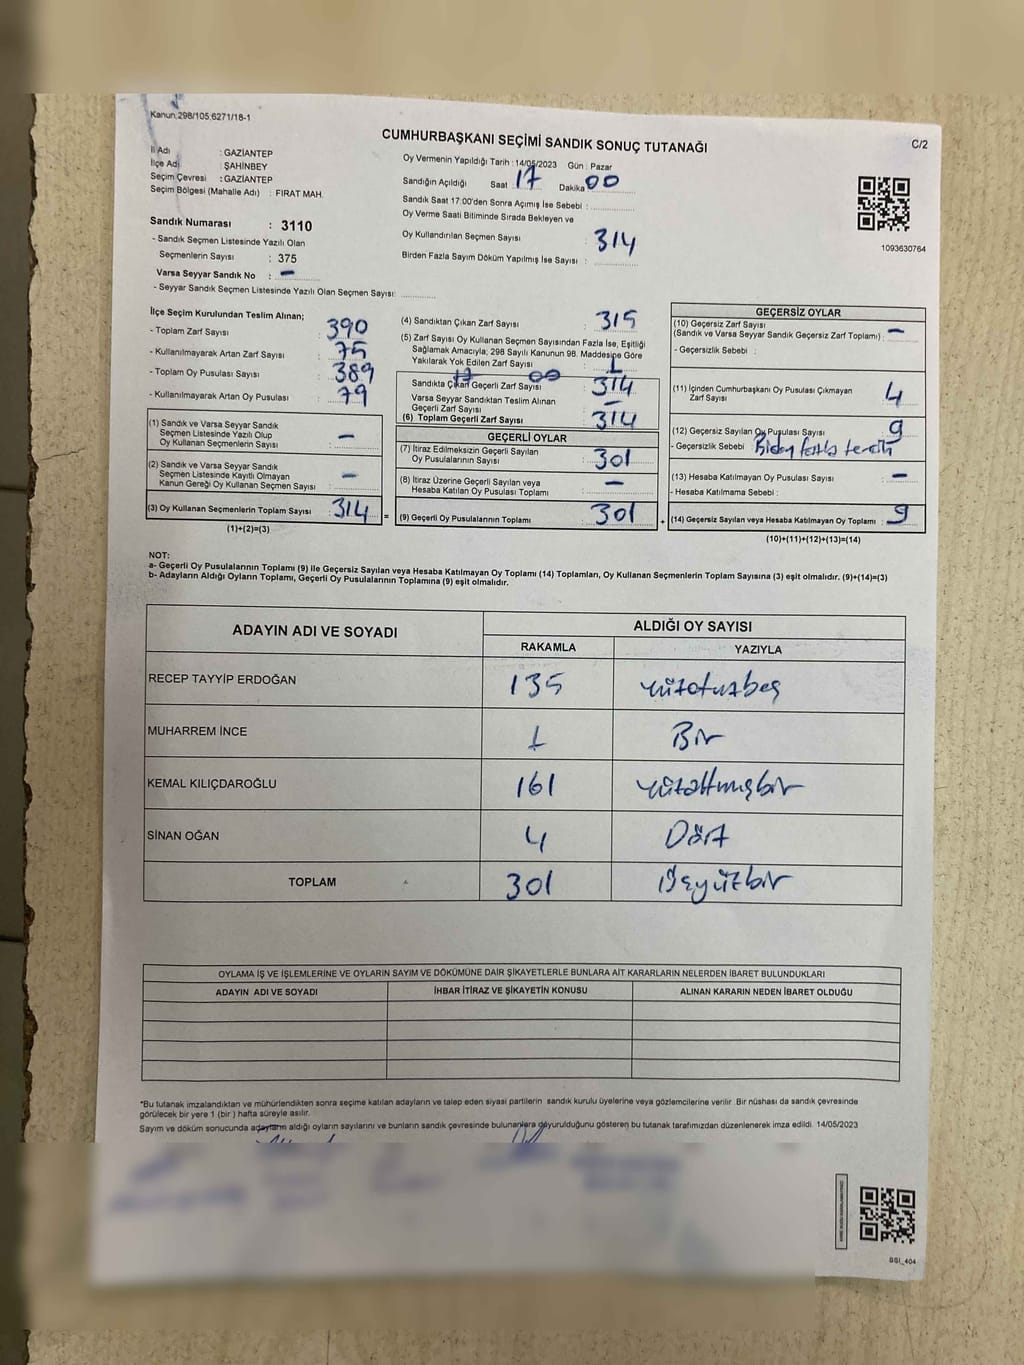 Kanun:298/105;6271/18-1
CUMHURBAŞKANI SEÇİMİ SANDIK SONUÇ TUTANAĞI
C/2
İl Adı : GAZİANTEP
İlçe Adı : ŞAHİNBEY
Seçim Çevresi : GAZİANTEP
Seçim Bölgesi (Mahalle Adı) : FIRAT MAH.
Sandık Numarası : 3110
- Sandık Seçmen Listesinde Yazılı Olan
Seçmenlerin Sayısı : 375
Varsa Seyyar Sandık No : -
- Seyyar Sandık Seçmen Listesinde Yazılı Olan Seçmen Sayısı:
Oy Vermenin Yapıldığı Tarih : 14/05/2023 Gün : Pazar
Sandığın Açıldığı Saat : 17 Dakika 00
Sandık Saat 17:00'den Sonra Açımış İse Sebebi :
Oy Verme Saati Bitiminde Sırada Bekleyen ve
Oy Kullandırılan Seçmen Sayısı : 314
Birden Fazla Sayım Döküm Yapılmış İse Sayısı :
1093630764
İlçe Seçim Kurulundan Teslim Alınan;
- Toplam Zarf Sayısı : 390
- Kullanılmayarak Artan Zarf Sayısı : 75
- Toplam Oy Pusulası Sayısı : 389
- Kullanılmayarak Artan Oy Pusulası : 79
(1) Sandık ve Varsa Seyyar Sandık
Seçmen Listesinde Yazılı Olup
Oy Kullanan Seçmenlerin Sayısı : -
(2) Sandık ve Varsa Seyyar Sandık
Seçmen Listesinde Kayıtlı Olmayan
Kanun Gereği Oy Kullanan Seçmen Sayısı : -
(3) Oy Kullanan Seçmenlerin Toplam Sayısı : 314
(1)+(2)=(3)
=
(4) Sandıktan Çıkan Zarf Sayısı : 315
(5) Zarf Sayısı Oy Kullanan Seçmen Sayısından Fazla İse, Eşitliği
Sağlamak Amacıyla; 298 Sayılı Kanunun 98. Maddesine Göre
Yakılarak Yok Edilen Zarf Sayısı : 1
17 00
Sandıkta Çıkan Geçerli Zarf Sayısı : 314
Varsa Seyyar Sandıktan Teslim Alınan
Geçerli Zarf Sayısı : -
(6) Toplam Geçerli Zarf Sayısı : 314
GEÇERLİ OYLAR
(7) İtiraz Edilmeksizin Geçerli Sayılan
Oy Pusulalarının Sayısı : 301
(8) İtiraz Üzerine Geçerli Sayılan veya
Hesaba Katılan Oy Pusulası Toplamı : -
(9) Geçerli Oy Pusulalarının Toplamı : 301
+
GEÇERSİZ OYLAR
(10) Geçersiz Zarf Sayısı
(Sandık ve Varsa Seyyar Sandık Geçersiz Zarf Toplamı) : -
- Geçersizlik Sebebi :
(11) İçinden Cumhurbaşkanı Oy Pusulası Çıkmayan
Zarf Sayısı 4
(12) Geçersiz Sayılan Oy Pusulası Sayısı : 9
- Geçersizlik Sebebi Birden fazla tercih
(13) Hesaba Katılmayan Oy Pusulası Sayısı : -
- Hesaba Katılmama Sebebi :
(14) Geçersiz Sayılan veya Hesaba Katılmayan Oy Toplamı : 9
(10)+(11)+(12)+(13)=(14)
NOT:
a- Geçerli Oy Pusulalarının Toplamı (9) ile Geçersiz Sayılan veya Hesaba Katılmayan Oy Toplamı (14) Toplamları, Oy Kullanan Seçmenlerin Toplam Sayısına (3) eşit olmalıdır. (9)+(14)=(3)
b- Adayların Aldığı Oyların Toplamı, Geçerli Oy Pusulalarının Toplamına (9) eşit olmalıdır.
ADAYIN ADI VE SOYADI
ALDIĞI OY SAYISI
RAKAMLA YAZIYLA
RECEP TAYYİP ERDOĞAN 135 Yüzotuzbeş
MUHARREM İNCE 1 Bir
KEMAL KILIÇDAROĞLU 161 Yüzaltmışbir
SİNAN OĞAN 4 Dört
TOPLAM 301 Üçyüzbir
OYLAMA İŞ VE İŞLEMLERİNE VE OYLARIN SAYIM VE DÖKÜMÜNE DAİR ŞİKAYETLERLE BUNLARA AİT KARARLARIN NELERDEN İBARET BULUNDUKLARI
ADAYIN ADI VE SOYADI İHBAR İTİRAZ VE ŞİKAYETİN KONUSU ALINAN KARARIN NEDEN İBARET OLDUĞU
*Bu tutanak imzalandıktan ve mühürlendikten sonra seçime katılan adayların ve talep eden siyasi partilerin sandık kurulu üyelerine veya gözlemcilerine verilir. Bir nüshası da sandık çevresinde
görülecek bir yere 1 (bir ) hafta süreyle asılır.
Sayım ve döküm sonucunda adayların aldığı oyların sayılarını ve bunların sandık çevresinde bulunanlara duyurulduğunu gösteren bu tutanak tarafımızdan düzenlenerek imza edildi. 14/05/2023
SSI_404